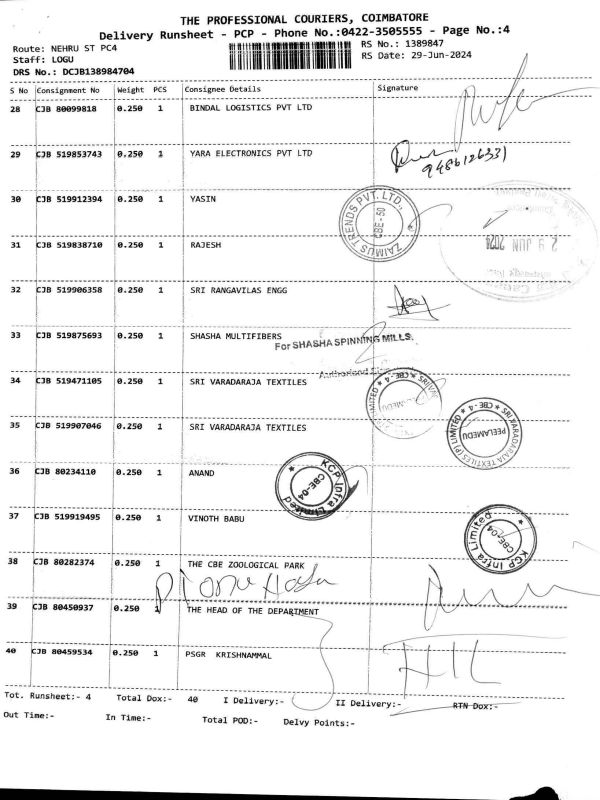 THE PROFESSIONAL COURIERS, COIMBATORE
Delivery Runsheet - PCP - Phone No.:0422-3505555 - Page No.:4
Route: NEHRU ST PC4
RS No.: 1389847
Staff: LOGU
RS Date: 29-Jun-2024
DRS No.: DCJB138984704
S No Consignment No Weight PCS Consignee Details Signature
28 CJB 80099818 0.250 1 BINDAL LOGISTICS PVT LTD
29 CJB 519853743 0.250 1 YARA ELECTRONICS PVT LTD
9486126331
30 CJB 519912394 0.250 1 YASIN
ZAIMUS TRENDS PVT. LTD.,
CBE-50
31 CJB 519838710 0.250 1 RAJESH
29 JUN 2024
32 CJB 519906358 0.250 1 SRI RANGAVILAS ENGG
33 CJB 519875693 0.250 1 SHASHA MULTIFIBERS
For SHASHA SPINNING MILLS,
34 CJB 519471105 0.250 1 SRI VARADARAJA TEXTILES
35 CJB 519907046 0.250 1 SRI VARADARAJA TEXTILES
SRI VARADARAJA TEXTILES (P) LIMITED ★ CBE-4 ★
PEELAMEDU
36 CJB 80234110 0.250 1 ANAND
KCP Infra Limited
CBE-04
37 CJB 519919495 0.250 1 VINOTH BABU
KCP Infra Limited
CBE-04
38 CJB 80282374 0.250 1 THE CBE ZOOLOGICAL PARK
39 CJB 80450937 0.250 1 THE HEAD OF THE DEPARTMENT
40 CJB 80459534 0.250 1 PSGR KRISHNAMMAL
Tot. Runsheet:- 4 Total Dox:- 40 I Delivery:- II Delivery:- RTN Dox:-
Out Time:- In Time:- Total POD:- Delvy Points:-